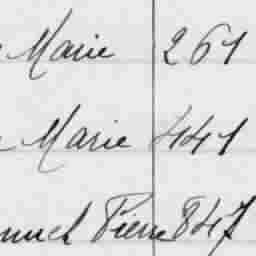 Marie 261
Marie 441
Pierre 847